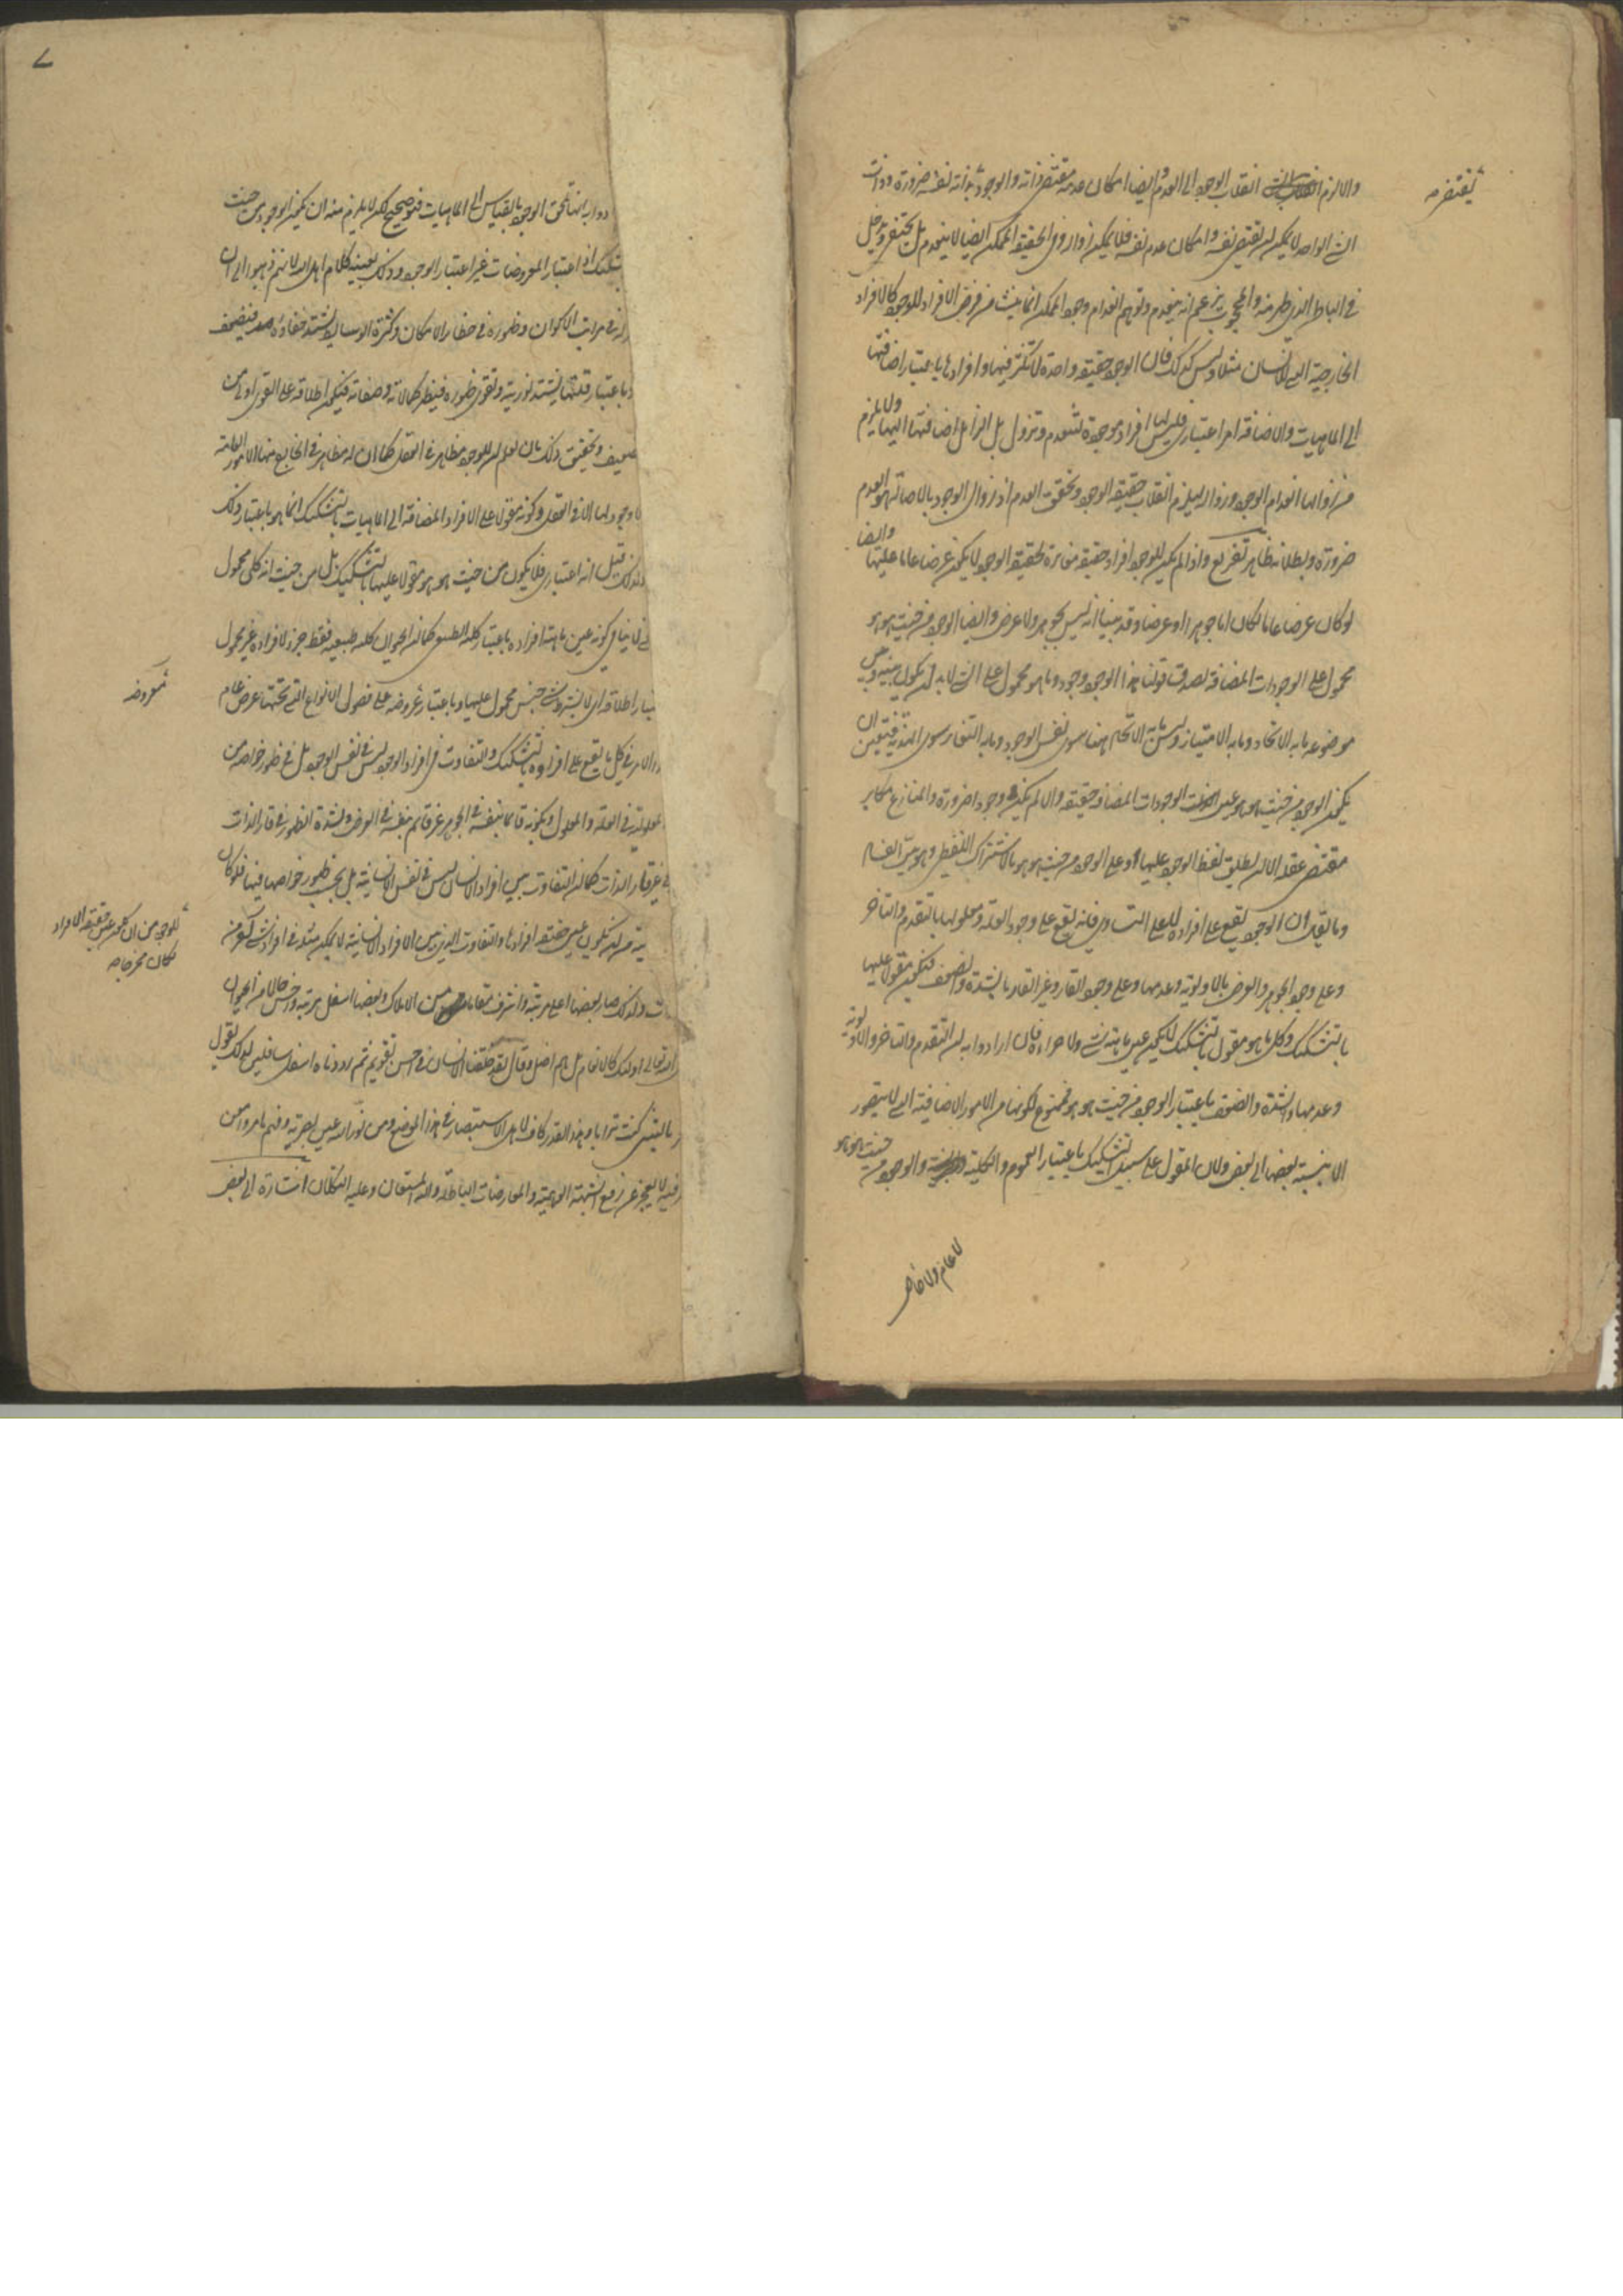 والا لزم انقلاب الوجود الى العدم وايضا امكان عدمه مقتضى ذاته والوجود يقتضى بذاته نفسه ضرورة وذات
الشئ الواحد لا يمكن ان تقتضى نفسه وامكان عدم نفسه فلا يمكن زواله وفى الحقيقة الممكن ايضا لا ينعدم بل يختفى ويدخل
فى الباطن الذى ظهر منه والمحجوب يزعم انه ينعدم وتوهم انعدام وجود الممكن انما ينشأ من فرض الافراد للوجود كالافراد
الخارجية التى للانسان مثلا وليس كذلك فان الوجود حقيقة واحدة لا تكثر فيها وافرادها باعتبار اضافتها
الى الماهيات والاضافة امر اعتبارى فليس لها افراد موجودة لتنعدم وتزول بل الزائل اضافتها اليها ولا يلزم
من زوالها انعدام الوجود وزواله ليلزم انقلاب حقيقة الوجود وتحقق العدم اذ زوال الوجود بالاصالة هو العدم
ضرورة وبطلانه ظاهر تفريع واذا لم يكن للوجود افراد حقيقية مغايرة لحقيقة الوجود لا يكون عرضا عاما عليها وايضا
لو كان عرضا عاما لكان اما جوهرا او عرضا وقد بينا انه ليس بجوهر ولا عرض وايضا الوجود من حيث هو هو
محمول على الوجودات المضافة لصدق قولنا هذا الوجود وجود وما هو محمول على الشئ لابد ان يكون بينه وبين
موضوعه ما به الاتحاد وما به الامتياز وليس ما به الاتحاد هنا سوى نفس الوجود وما به التغاير سوى الهذية فتعين ان
يكون الوجود من حيث هو هو عين الوجودات المضافة حقيقة والا لم يكن وجودا ضرورة والمنازع مكابر
مقتضى عقله الا ان يطلق لفظ الوجود عليها وعلى الوجود من حيث هو هو بالاشتراك اللفظى وهو بين الفساد
وما يقال ان الوجود يقع على افراده لا على التساوى فانه يقع على وجود العلة ومعلولها بالتقدم والتأخر
وعلى وجود الجوهر والعرض بالاولوية وعدمها وعلى وجود القار وغير القار بالشدة والضعف فيكون مقولا عليها
بالتشكيك وكل ما هو مقول بالتشكيك لا يكون عين ماهية شئ ولا جزءه فان ارادوا به ان التقدم والتأخر والاولوية
وعدمها والشدة والضعف باعتبار الوجود من حيث هو هو فممنوع لكونها من الامور الاضافية التى لا يتصور
الا بنسبة بعضها الى بعض ولان المقول على سبيل التشكيك باعتبار العموم والكلية والوجود من حيث هو هو
لا عام ولا خاص
تقتضى
ارادوا به انها تلحق الوجود بالقياس الى الماهيات فهو صحيح لكن لا يلزم منه ان يكون الوجود من حيث
بتشكيك اذ اعتبار المعروضات غير اعتبار الوجود وذلك بعينه كلام اهل الله لانهم ذهبوا الى ان
فى مراتب الاكوان وظهوره فى حظائر الامكان وكثرة الوسائط يشتد خفاؤه فيضعف
وباعتبار قلتها يشتد نوريته ويقوى ظهوره فيظهر كمالاته وصفاته فيكون اطلاقه على القوى اولى من
الضعيف وتحقيق ذلك بان تعلم ان للوجود مظاهر فى العقل كما ان له مظاهر فى الخارج منها الامور العامة
لا وجود لها الا فى العقل وكونه مقولا على الافراد المضافة الى الماهيات بالتشكيك انما هو باعتبار ذلك
ولذلك قيل انه اعتبارى فلا يكون من حيث هو هو مقولا عليها بالتشكيك بل من حيث انه كلى محمول
لا ينافى كونه عين ماهية افراده باعتبار كليه الطبيعى كما ان الحيوان كليه طبيعية فقط جزء لافراده غير محمول
باعتبار اطلاقه اى لا بشرط شئ جنس محمول عليها وباعتبار عروضه على فصول الانواع التى تحتها عرض عام
الامر فى كل ما يقع على افراده بالتشكيك والتفاوت فى افراد الوجود ليس فى نفس الوجود بل فى ظهور خواصه من
المعلولية فى العلة والمعلول وبكونه قائما بنفسه فى الجوهر غير قائم بنفسه فى العرض وبشدة الظهور فى قار الذات
فى غير قار الذات كما ان التفاوت بين افراد الانسان ليس فى نفس الانسانية بل بحسب ظهور خواصها فيها فلو كان
من ان يكون عين حقيقة افرادها والتفاوت الذى بين الافراد الانسانية لا يمكن مثله فى افراد شئ آخر من
ولذلك صار بعضها اعلى مرتبة واشرف مقاما من الاملاك وبعضها اسفل مرتبة واخس حالا من الحيوان
الله تعالى اولئك كالانعام بل هم اضل وقال لقد خلقنا الانسان فى احسن تقويم ثم رددناه اسفل سافلين لذلك يقول
يا ليتنى كنت ترابا وهذا القدر كاف لاهل الاستبصار فى هذا الموضع ومن نور الله عين بصيرته وفهم ما مر وامعن
فيه لا يعجز عن رفع الشبهة الوهمية والمعارضات الباطلة والله المستعان وعليه التكلان اشارة الى بعض
عروضه
للوجود من ان يكون عين حقيقة الافراد
لكان مخرجا
٧